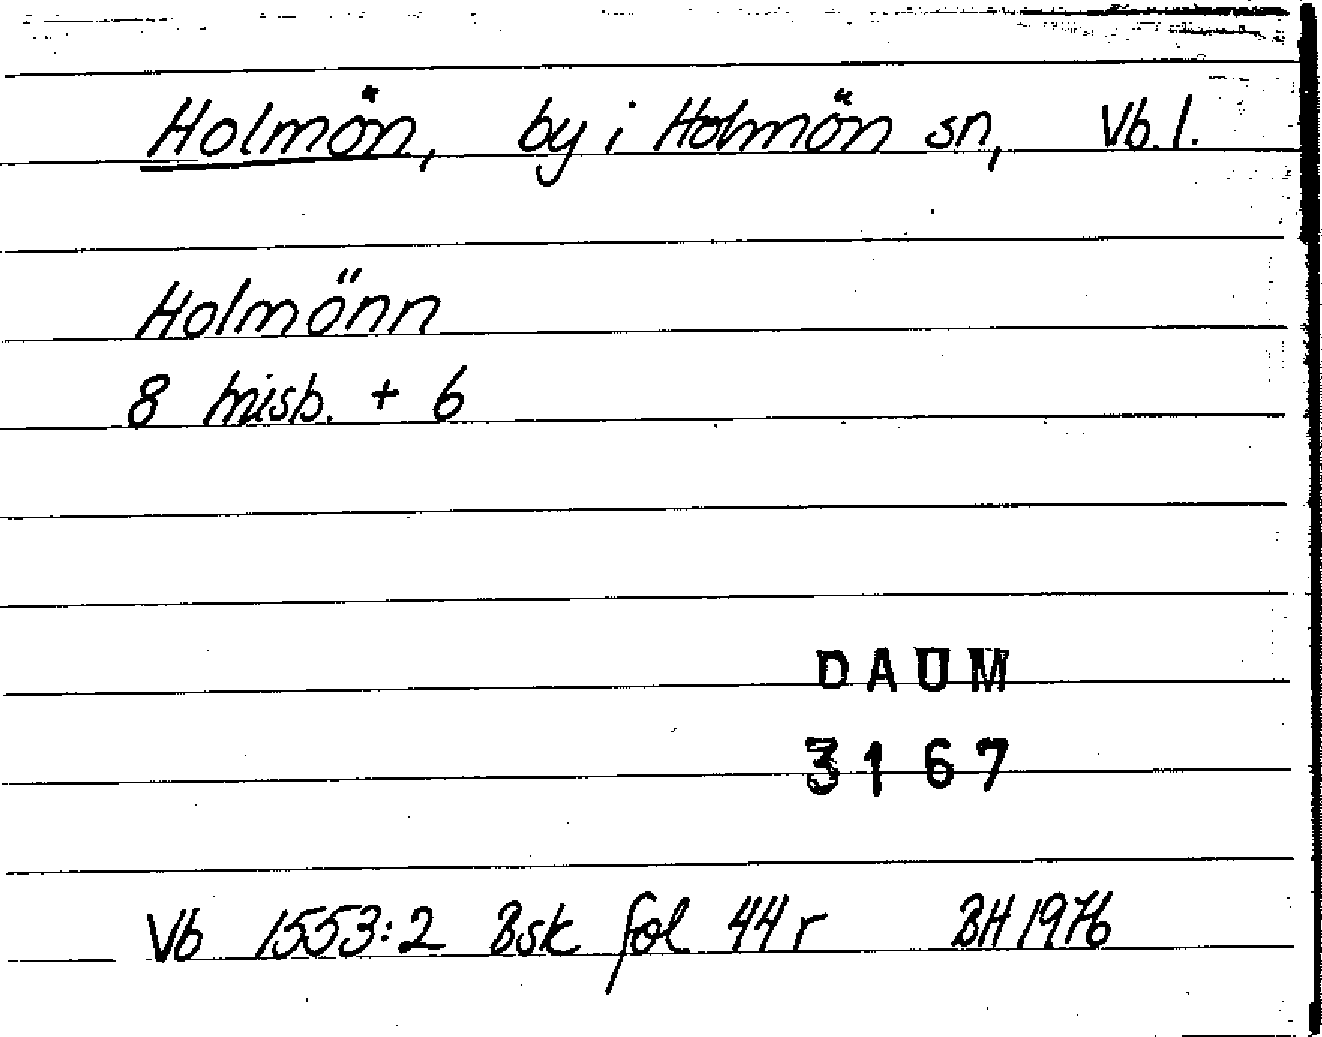 Holmön, by i Holmön sn, Vb. l.
Holmönn
8 + 6
DAUM
3167
Vb 1553:2 Bsk fol 44 r BH 1976